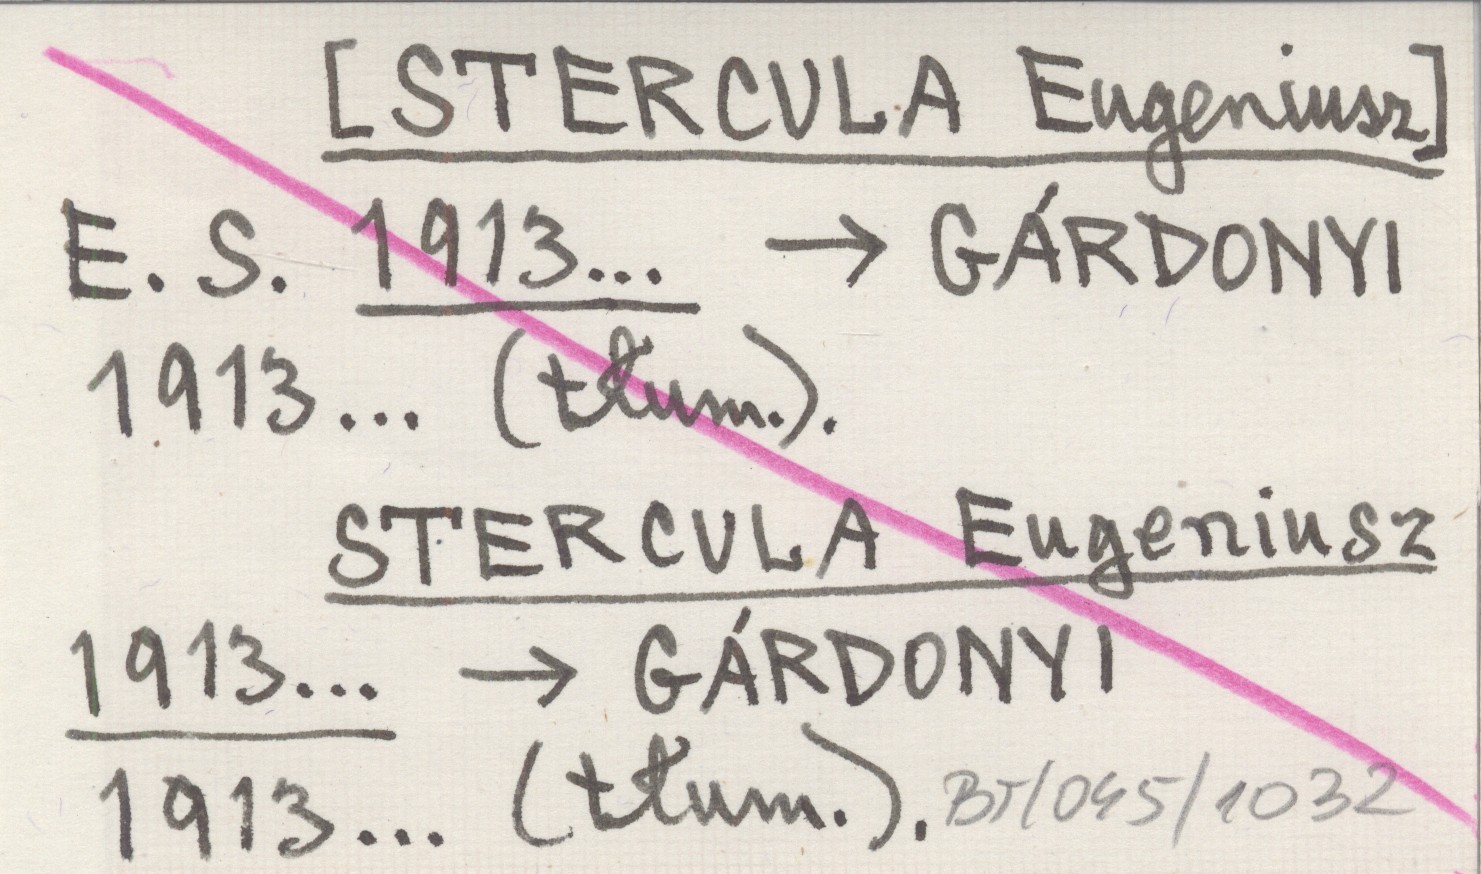 [STERCULA Eugeniusz]
E. S. 1913... → GÁRDONYI
1913... (tłum.).
STERCULA Eugeniusz
1913... → GÁRDONYI
1913... (tłum.). BJ/045/1032